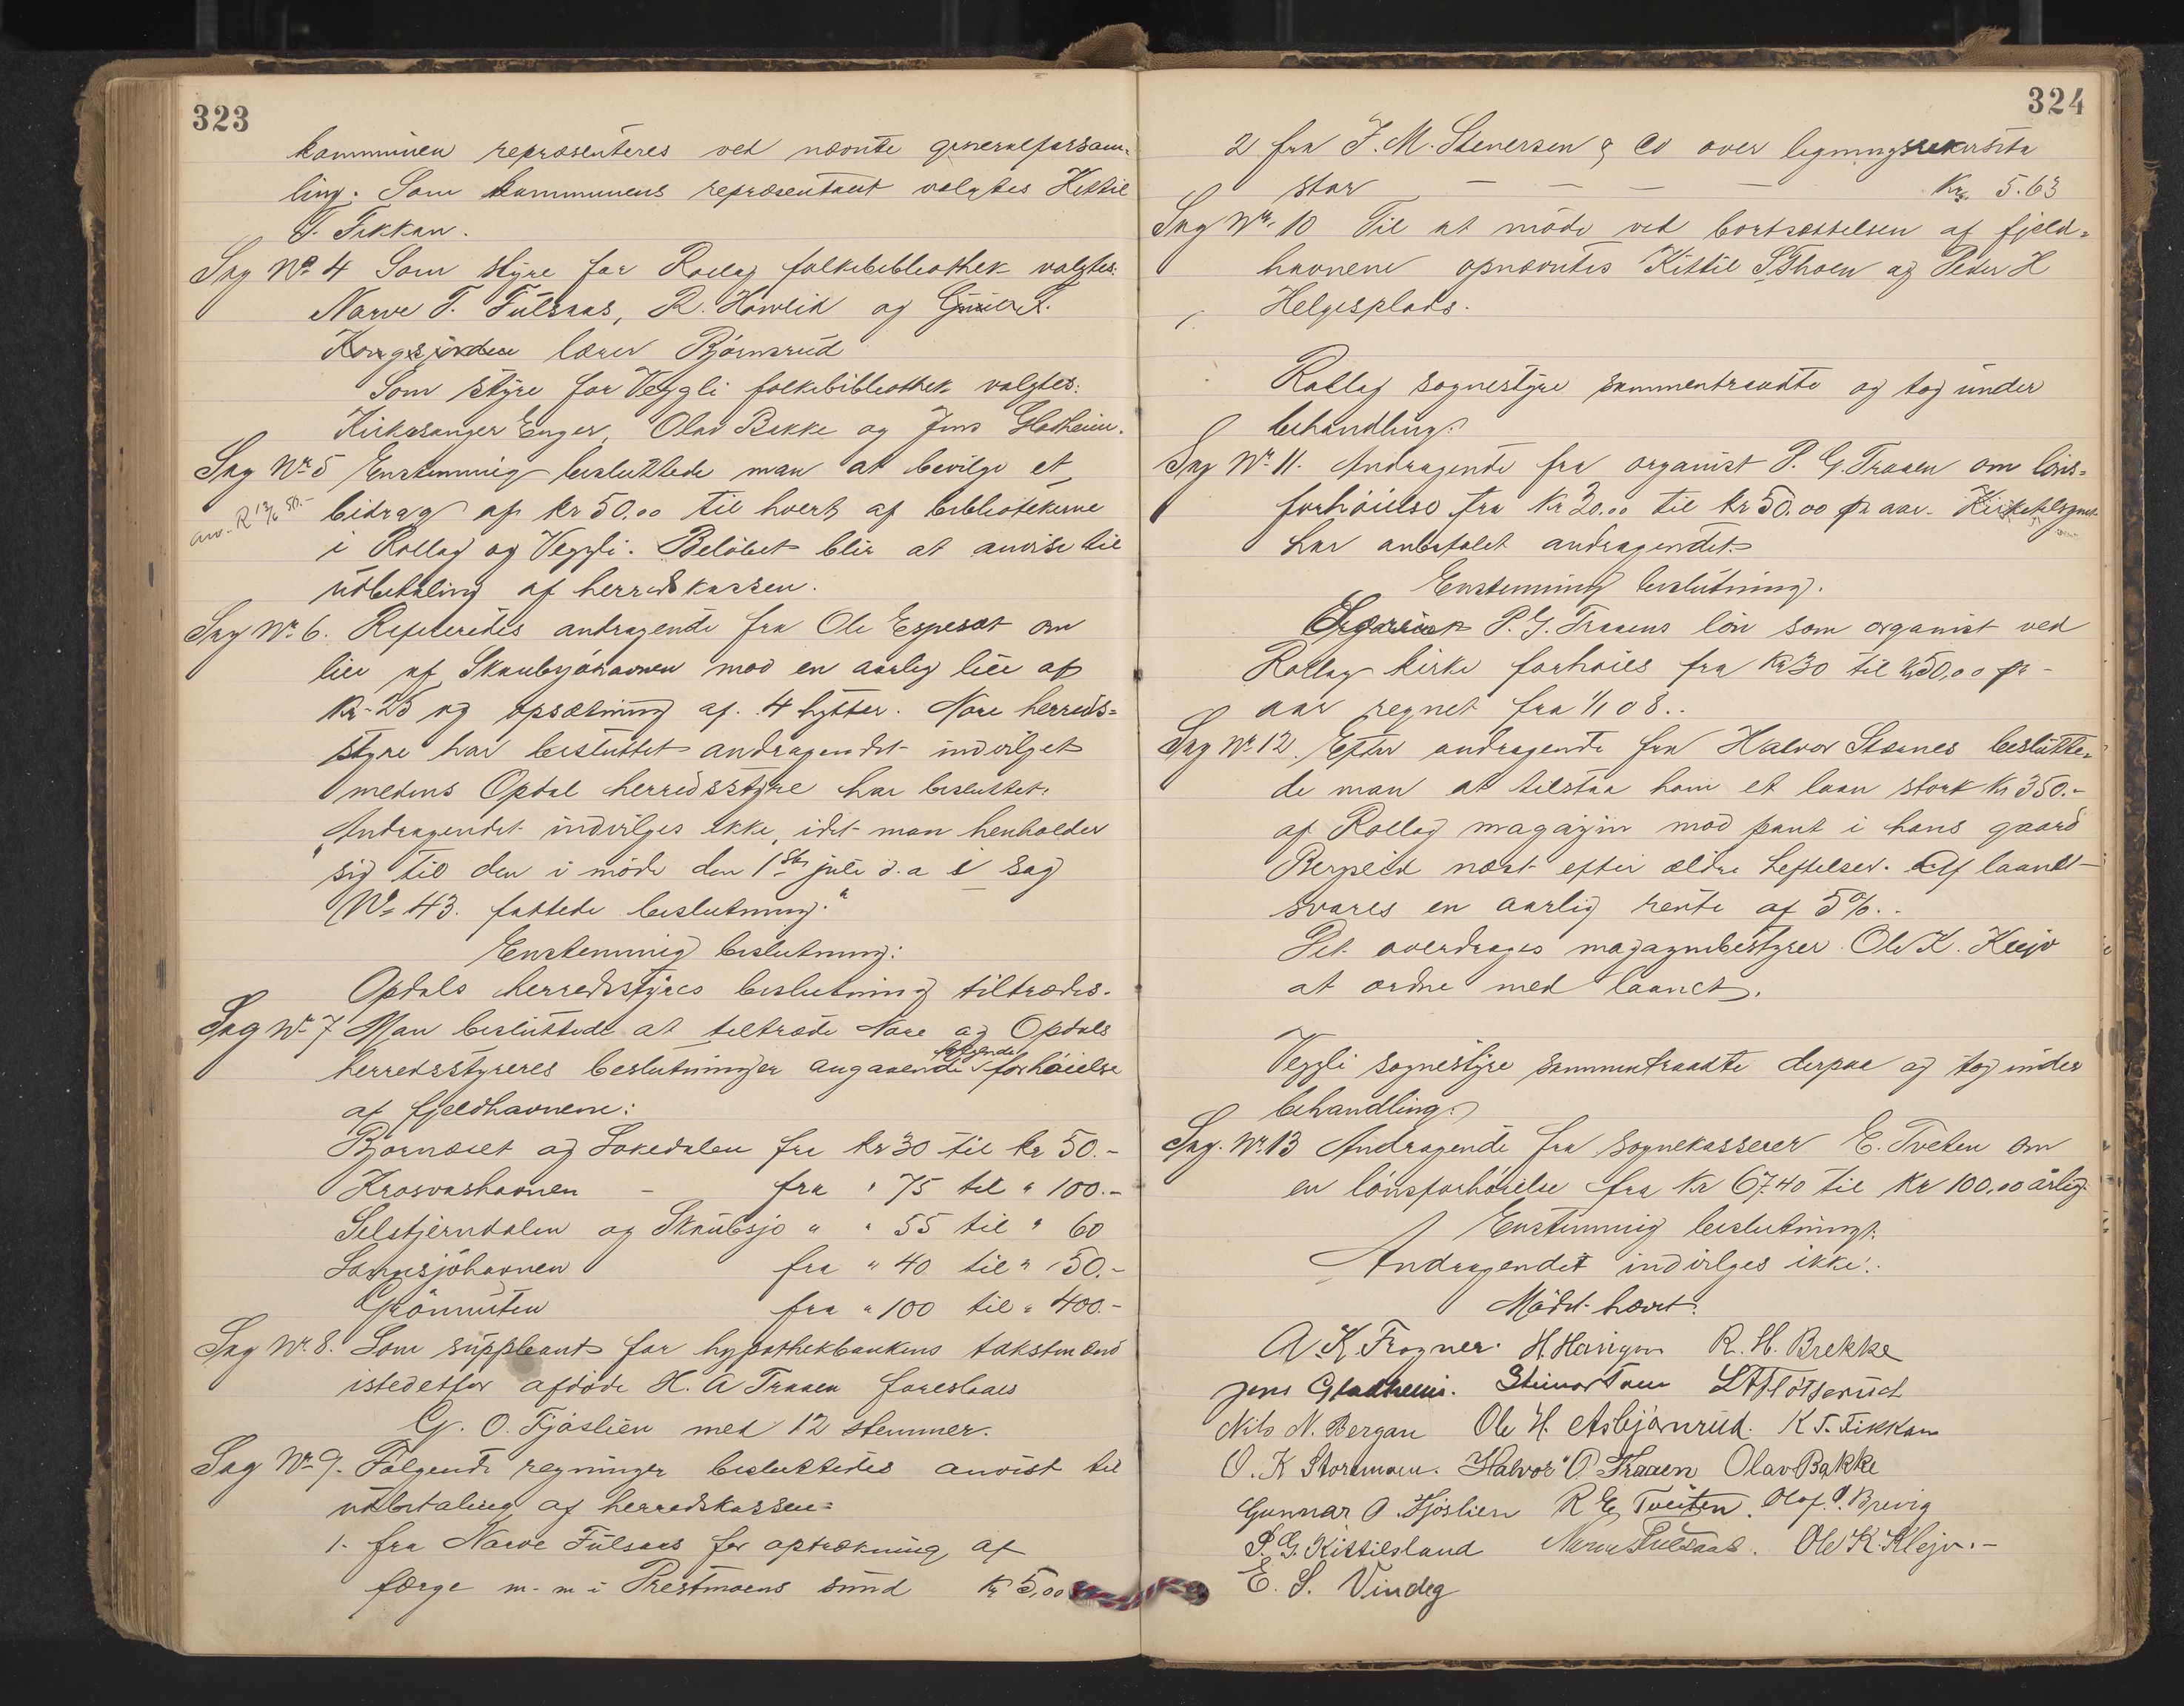 323
kommunen repræsenteres ved nævnte generalforsam-
ling. Som kommunens repræsentant valgtes Kittil
T. Fikkan.
Sag Nr. 4 Som styre for Rollag folkebibliothek valgtes:
Narve T. Fulsaas, R. Howlid og
lærer Bjørnsrud
Som styre for Veggli folkebibliothek valgtes:
Kirkesanger Enger, Olav Bakke og Jens Gladheim.
Sag Nr. 5 Enstemmig besluttede man at bevilge et
bidrag af kr 50.00 til hvert af bibliotekerne
i Rollag og Veggli. Beløbet blir at anvise til
udbetaling af herredskassen.
Sag Nr. 6. Refereredes andragende fra Ole Espeset om
leie af Skaubsjøhavnen mod en aarlig leie af
Kr. 25 og opsætning af 4 hytter. Nore herreds=
styre har besluttet andragendet indvilget
medens Opdal herredsstyre har besluttet:
"Andragendet indvilges ikke, idet man henholder
sig til den i møde den 1ste juli d.a i sag
Nr. 43. fattede beslutning."
Enstemmig beslutning:
Opdals herredsstyres beslutning tiltrædes.
Sag Nr. 7 Man besluttede at tiltræde Nore og Opdals
følgende
herredsstyreres beslutninger angaaende forhøielse
af fjeldhavnene:
Bjornæset og Lokedalen fra kr 30 til kr 50.-
Krosvashavnen - fra " 75 til " 100.-
Selstjerndalen og Skaubsjø " " 55 til " 60
Langesjøhavnen fra " 40 til " 50.-
Grønnuten fra " 100 til " 400.-
Sag Nr. 8. Som suppleant for hypothekbankens takstmænd
istedetfor afdøde H. A Traaen foreslaaes
G. O. Fjøslien med 12 stemmer.
Sag Nr. 9. Følgende regninger besluttedes anvist til
udbetaling af herredskassen:
1. fra Narve Fulsaas for optrækning af
færge m. m i Prestmoens sund Kr 5,00
324
2 fra J. M. Stenersen & Co over ligningsrekvisita
stor - - - - Kr. 5.63
Sag Nr. 10 Til at møde ved bortsættelsen af fjeld=
havnene opnævntes Kittil S Thoen og Peder H
Helgesplads.
Rollag sognestyre sammentraadte og tog under
behandling:
Sag Nr. 11. Andragende fra organist P. G. Traaen om løns=
forhøielse fra Kr 30.00 til kr 50.00 pr aar.
har anbefalet andragendet.
Enstemmig beslutning.
Organist P. G. Traaens løn som organist ved
Rollag kirke forhøies fra Kr 30 til kr 50,00 pr
aar regnet fra 1/1 08..
Sag Nr. 12. Efter andragende fra Halvor Stærnes beslutte=
de man at tilstaa ham et laan stort kr 350.-
af Rollag magazin mod pant i hans gaard
Berglid næst efter ældre heftelser. Af laanet
svares en aarlig rente af 5%..
Det overdrages magazinbestyrer Ole K. Klejv
at ordne med laanet.
Veggli sognestyre sammentraadte derpaa og tog under
behandling:
Sag. Nr. 13 Andragende fra sognekasserer E. Tveten om
en lønsforhøielse fra Kr 67.40 til Kr 100,00 årlig.
Enstemmig beslutning:
Andragendet indvilges ikke.
Mødet hævet.
A. K. Frogner. H. R. H. Brekke
Jens Gladheim. Steinar Traaen L T Fløtserud
Nils N. Bergan Ole H. Asbjørnrud. K T. Fikkan
O. K Stormoen. Halvor O Traaen Olav Bakke
Gunnar O. Fjøslien R E Tveiten. Olaf P. Brevig
P. G. Kittilsland Narve Fulsaas. Ole K. Klejv.-
E. S. Vindeg